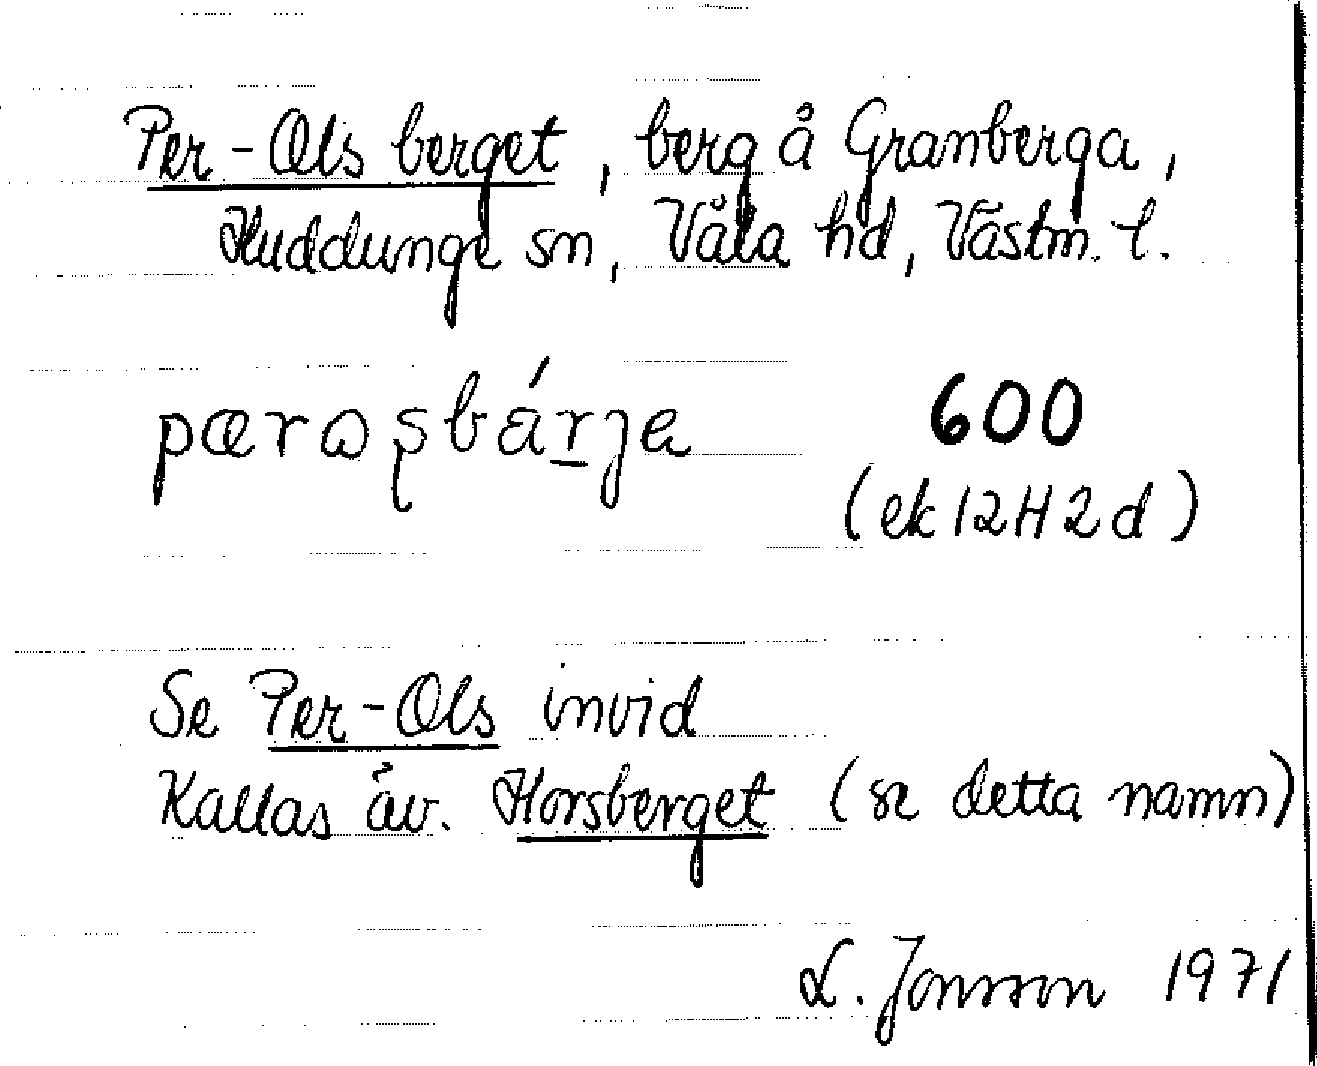 Per-Ols berget, berg å Granberga,
Huddunge sn, Våla hd, Västm. l.
pæroʂbárje
600
(ek 12H2d)
Se Per-Ols invid
Kallas äv. Horsberget (se detta namn)
L. Jonsson 1971